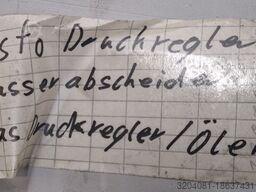 sto Druckregler
asserabscheider
as Druckregler / Öler
3204081-18637431